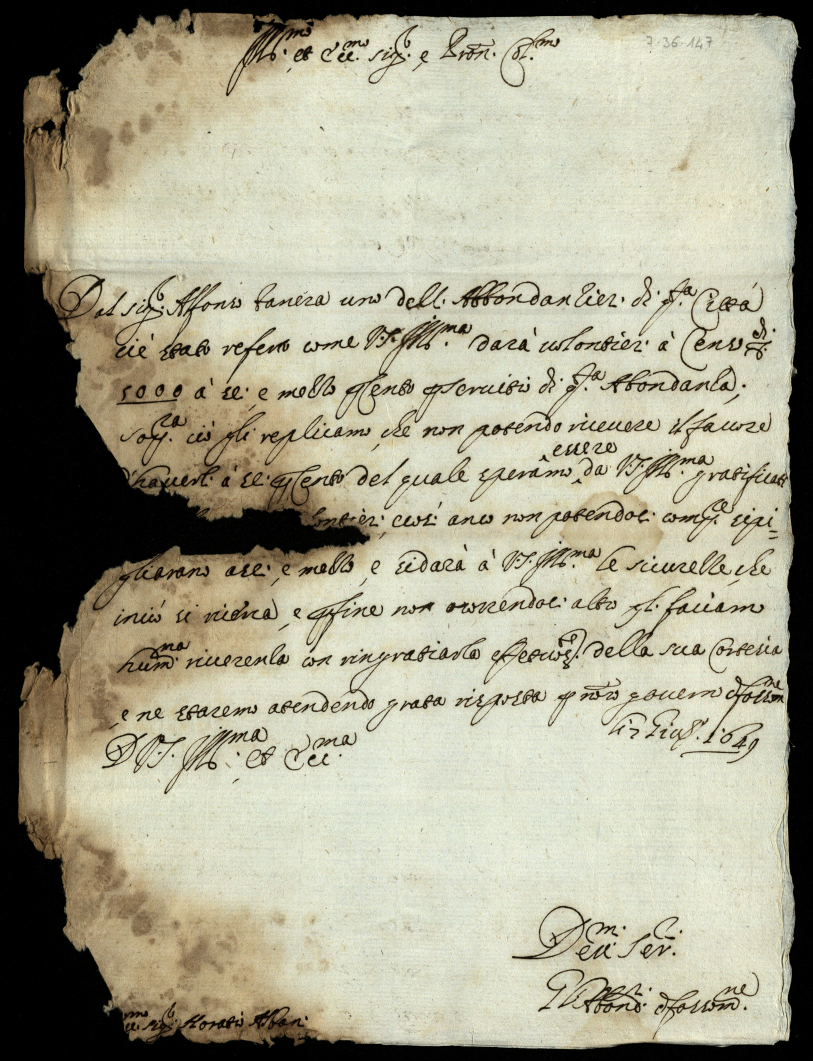 Ill.mo et Ecc.mo Sig.r e Pron. Col.mo
7-36-147
Dal Sig.r Alfonso uno dell. Abbondantier. di q.ta Città
ci è stato referto come V.S. Ill.ma darà volontier. à Censo
5000 à sei e mezzo p Cento p servitio di q.ta Abondanza.
Sop.ra ciò gli replicamo, che non potendo ricevere il favore
d'haverli à sei p Cento del quale speramo essere da V.S. Ill.ma gratificati
volontier. così anco non potendosi comp.ce si pi=
gliarano a sei e mezzo, e si darà à V.S. Ill.ma le sicurezze che
in ciò si ricerca, e p fine non occorrendoci altro gli faciam
hum.ma riverenza con ringratiarla della sua Cortesia
e ne staremo atendendo grata risposta p nostro governo
li 7 1649
D V.S. Ill.ma et Ecc.ma
Dev.mi Ser.ri
Abond.
Sig.r Horatio Alban.